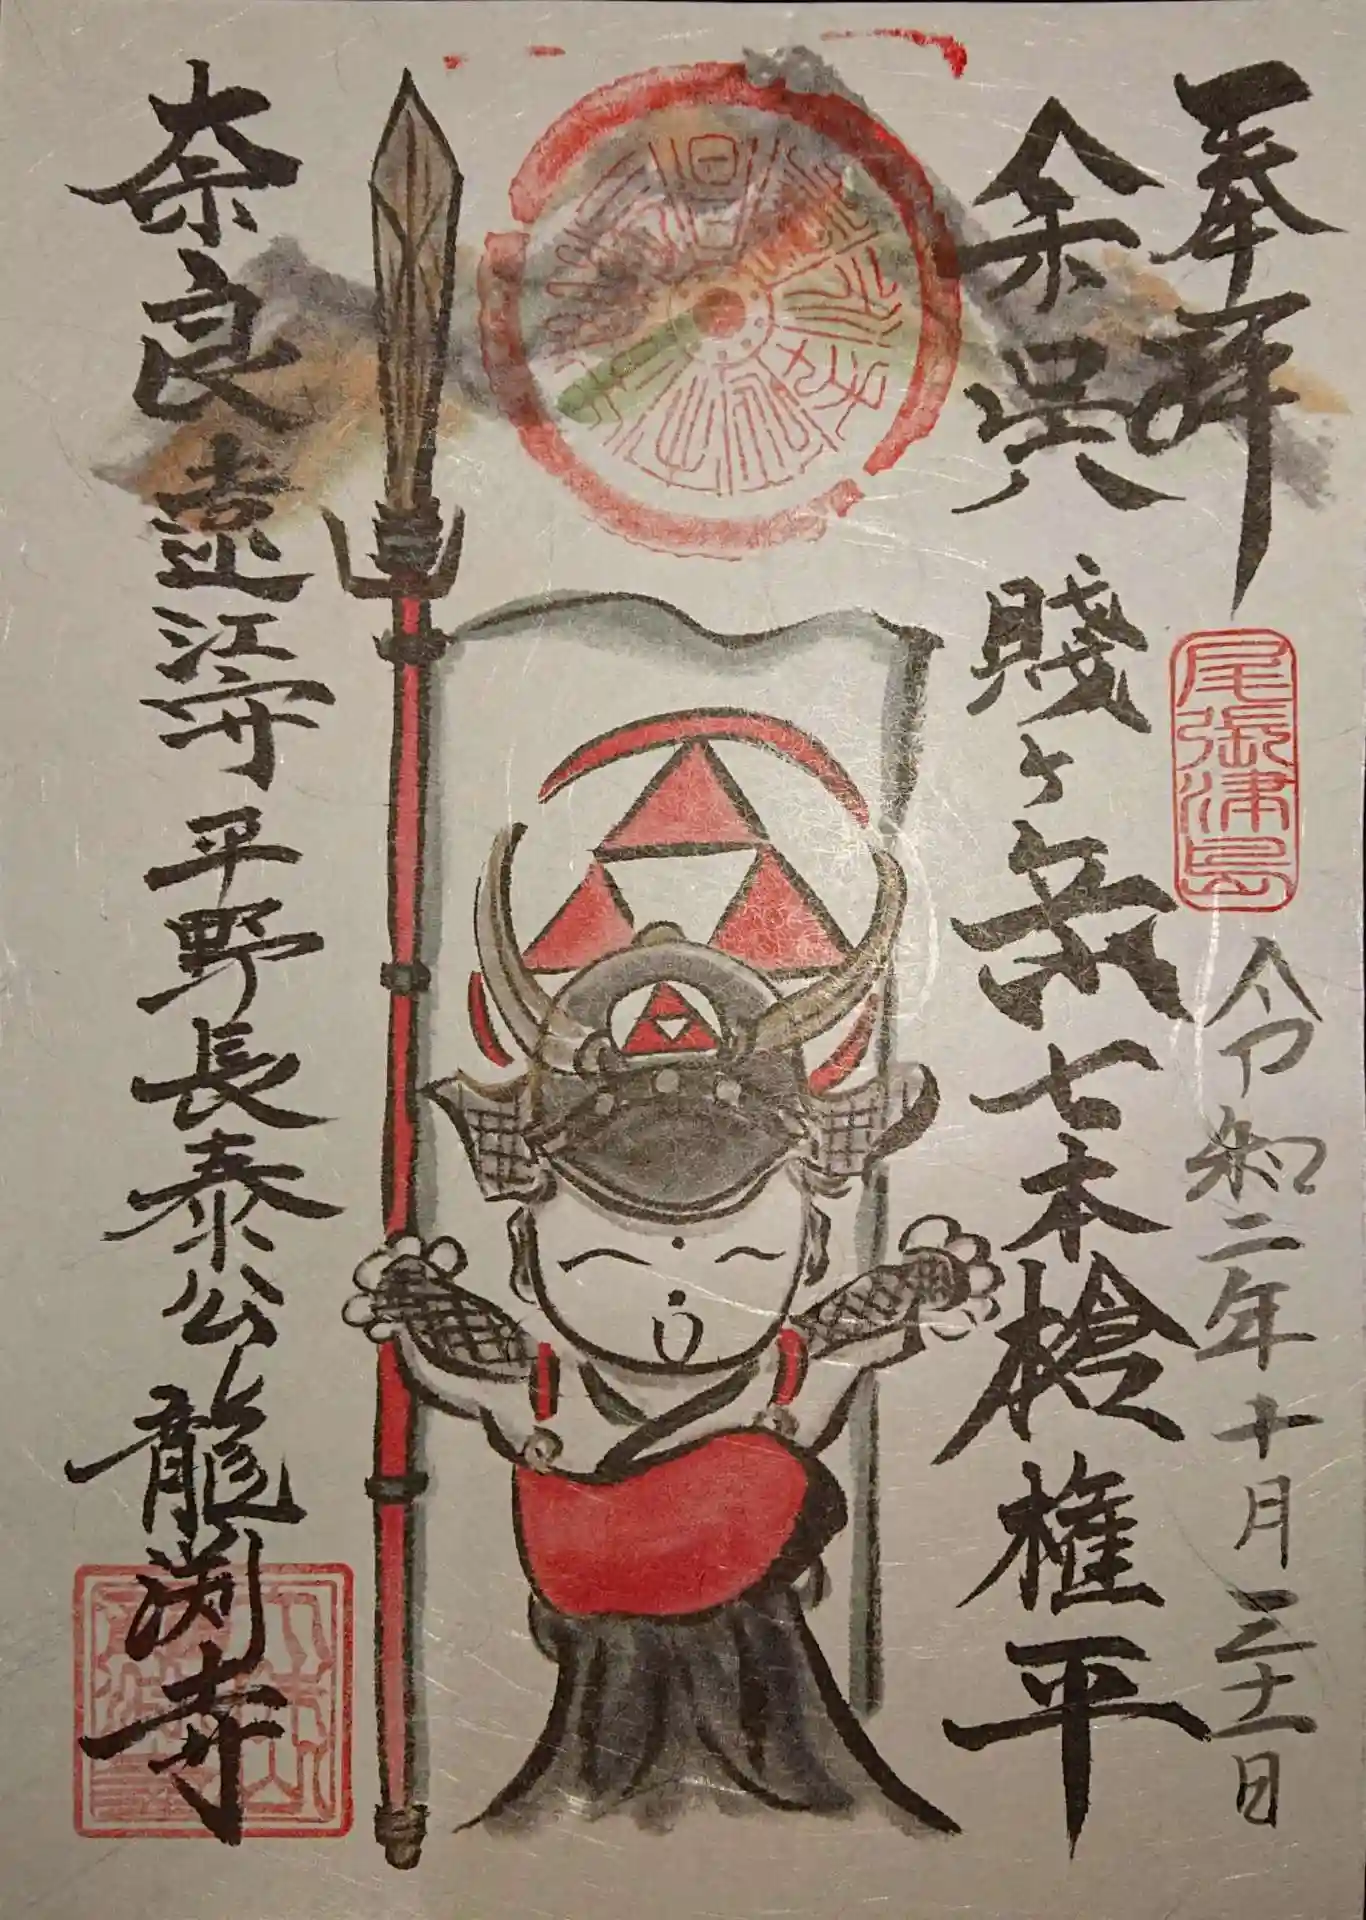 奉拝
尾張津島
令和二年十月三十一日
余呉 賤ヶ岳 七本槍 権平
奈良 遠江守 平野長泰公 龍渕寺